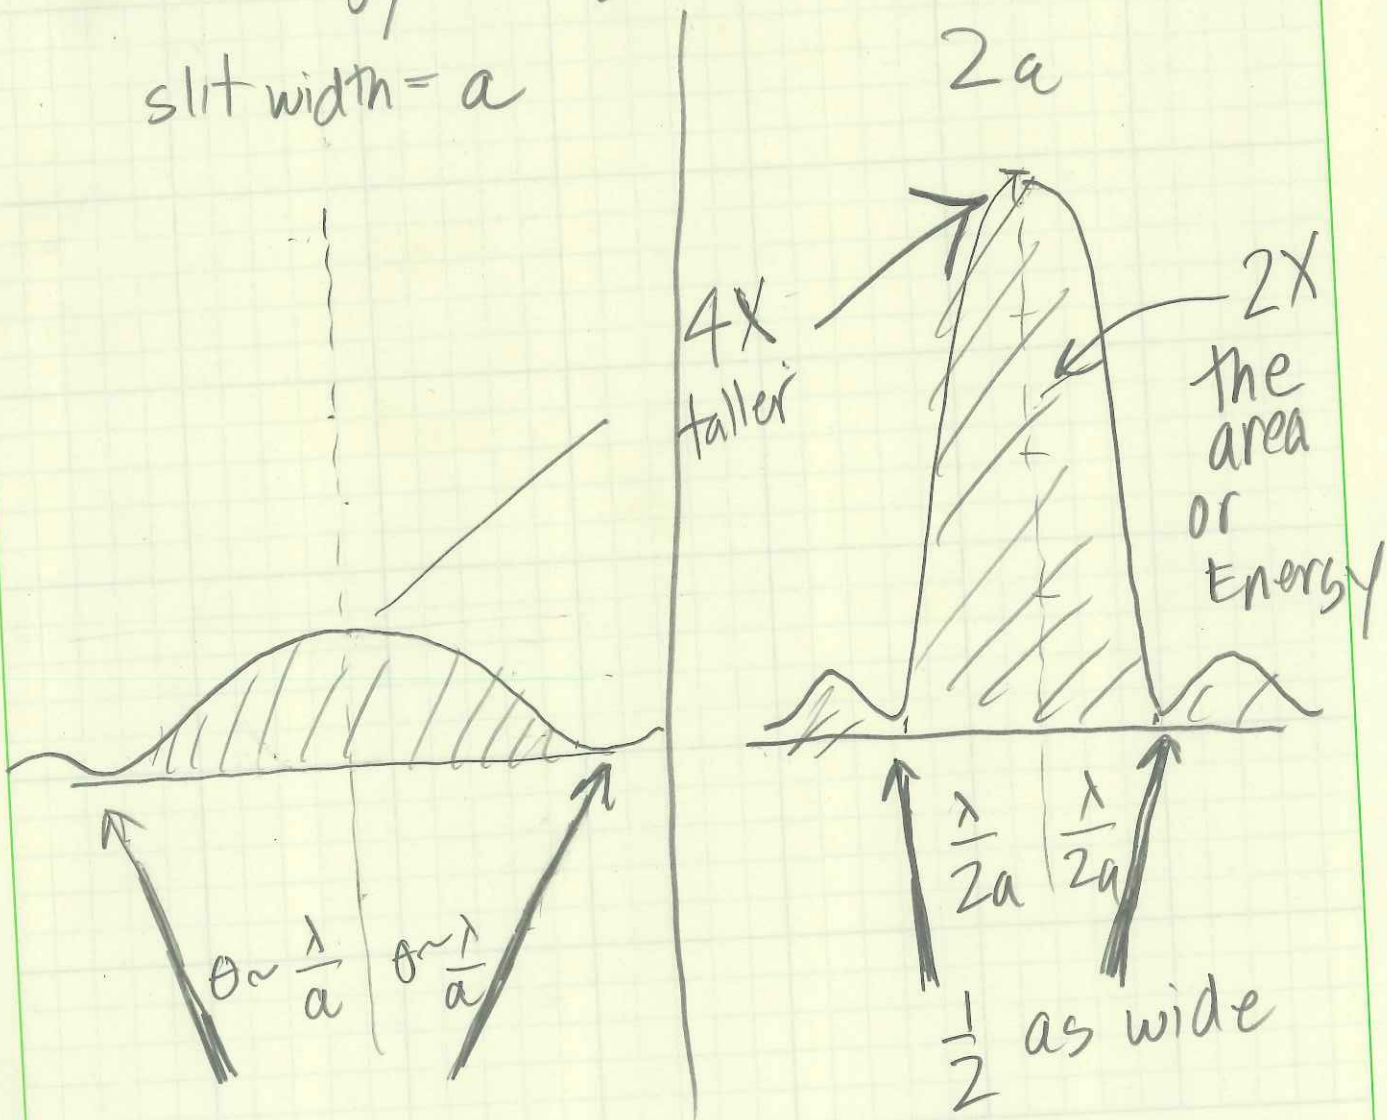 slit width = a
2a
4X
taller
2X
the
area
or
Energy
θ~ λ/a
θ~ λ/a
λ/2a
λ/2a
1/2 as wide